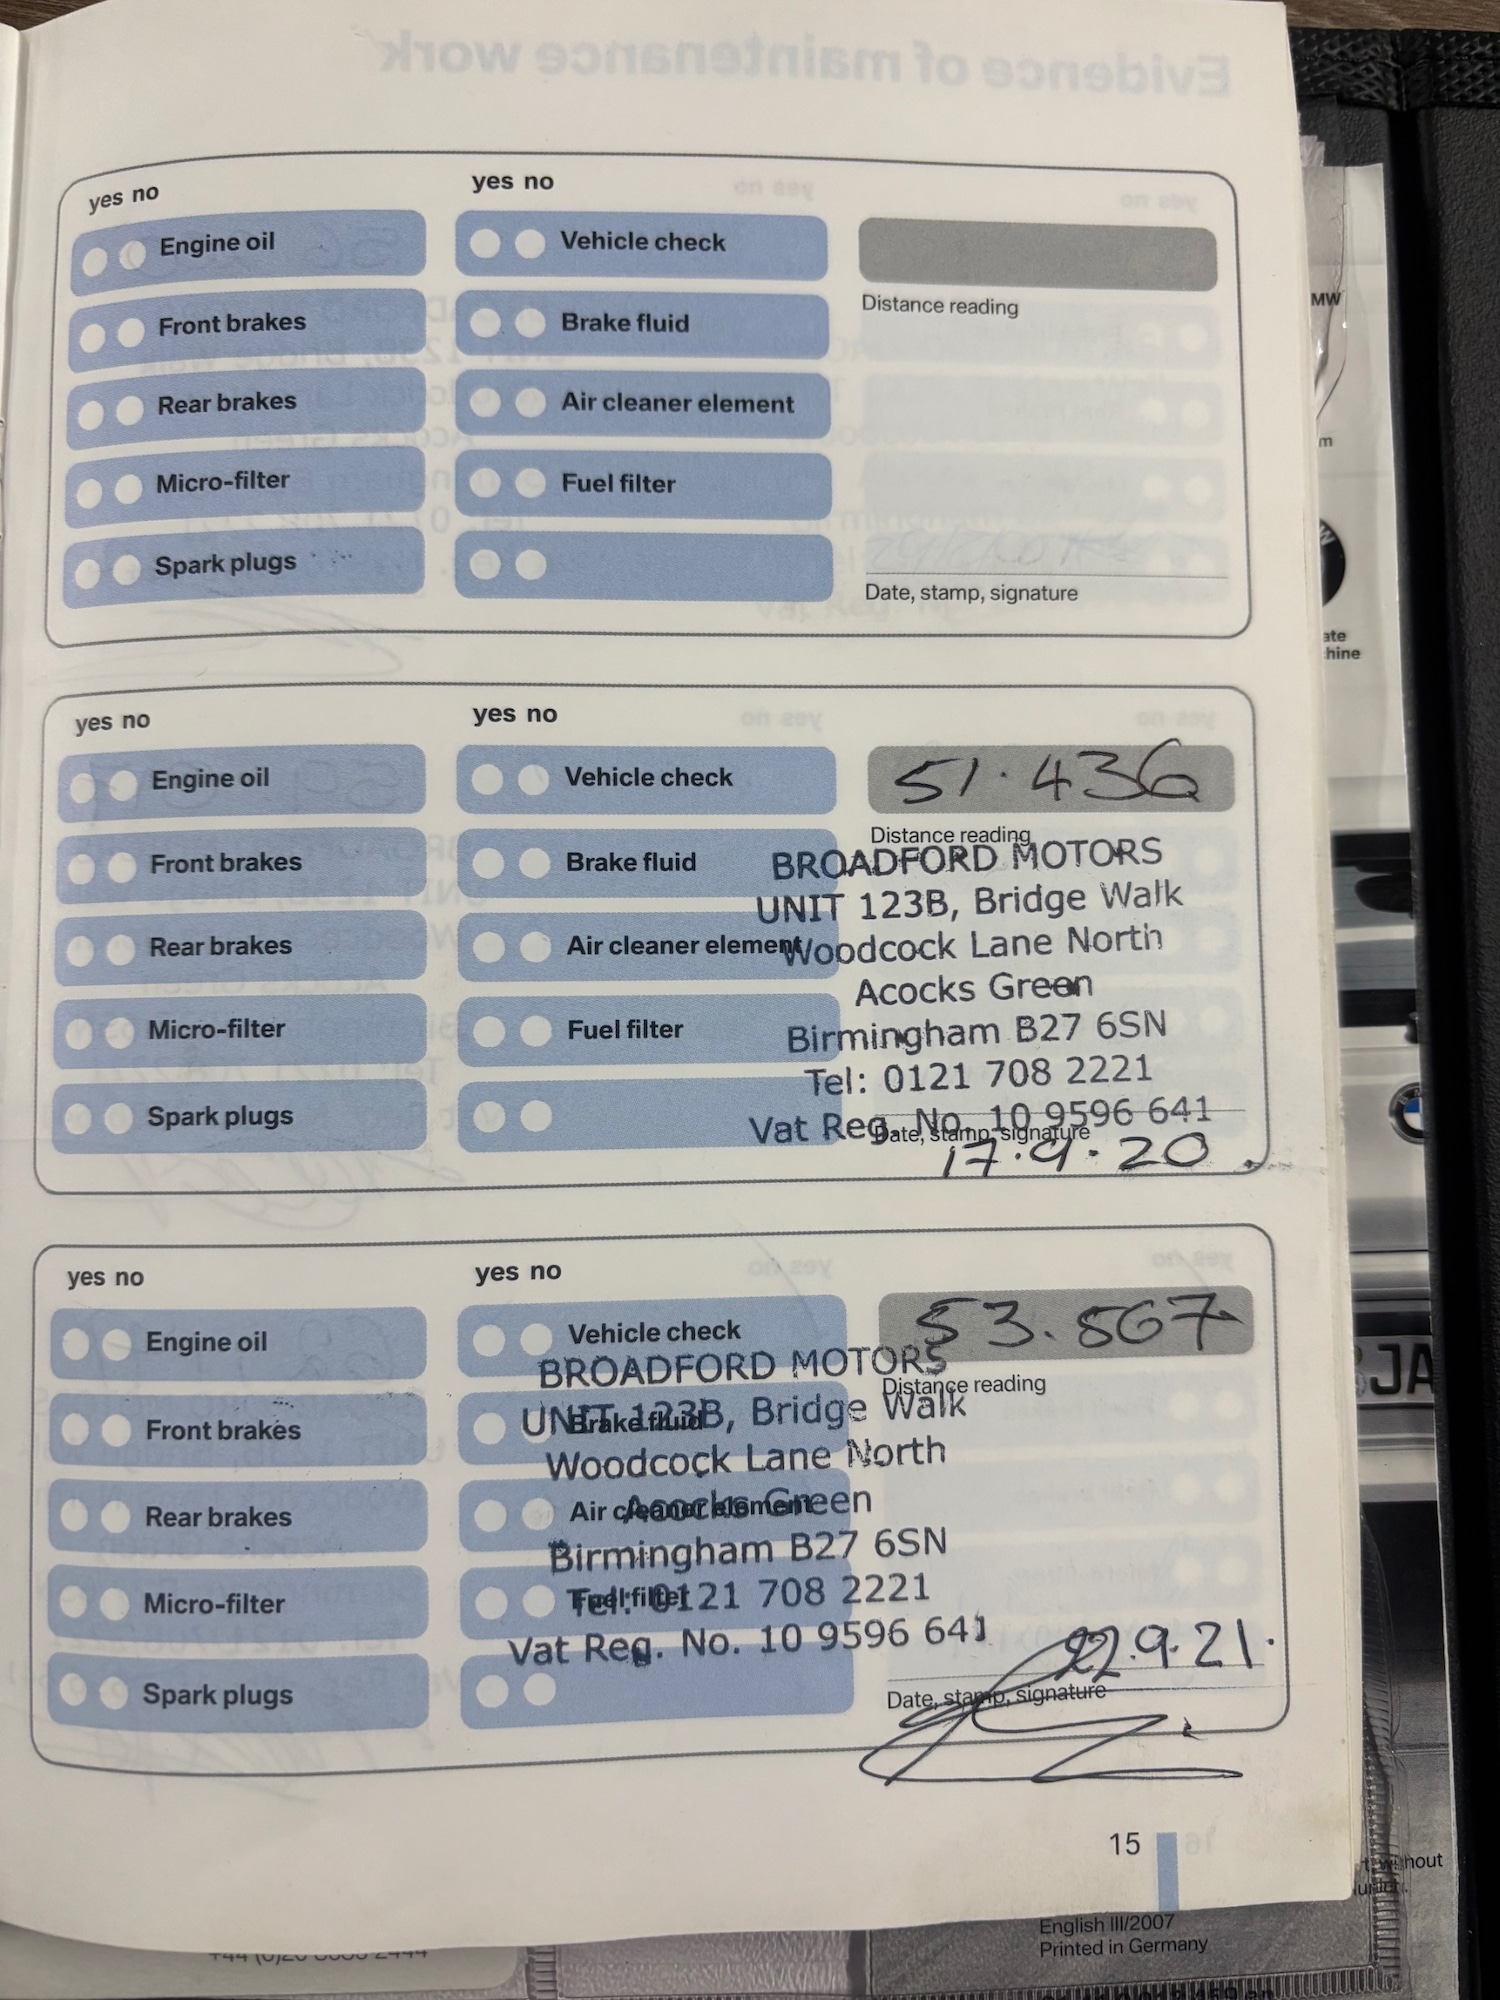 yes no
Engine oil
Front brakes
Rear brakes
Micro-filter
Spark plugs
yes no
Vehicle check
Brake fluid
Air cleaner element
Fuel filter
Distance reading
Date, stamp, signature
yes no
Engine oil
Front brakes
Rear brakes
Micro-filter
Spark plugs
yes no
Vehicle check
Brake fluid
Air cleaner element
Fuel filter
51.436
Distance reading
BROADFORD MOTORS
UNIT 123B, Bridge Walk
Woodcock Lane North
Acocks Green
Birmingham B27 6SN
Tel: 0121 708 2221
Vat Reg. No. 10 9596 641
Date, stamp, signature
17.9.20
yes no
Engine oil
Front brakes
Rear brakes
Micro-filter
Spark plugs
yes no
Vehicle check
Brake fluid
Air cleaner element
Fuel filter
53.867
Distance reading
BROADFORD MOTORS
UNIT 123B, Bridge Walk
Woodcock Lane North
Acocks Green
Birmingham B27 6SN
Tel: 0121 708 2221
Vat Reg. No. 10 9596 641
22.9.21.
Date, stamp, signature
15
English III/2007
Printed in Germany
MW
m
ate
hine
JA